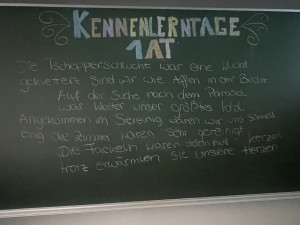 KENNENLERNTAGE
1AT
Die Tschepperschlucht war eine Wucht
geklettert sind wir wie Affen in der Bucht
Auf der Suche nach dem Parasol
war Walter unser größtes Idol.
Angekommen im Sereinig waren wir uns schnell
einig die Zimmer waren sehr gereinigt
Die Fackeln waren doch nur Kerzen
trotz erwärmten sie unsere Herzen